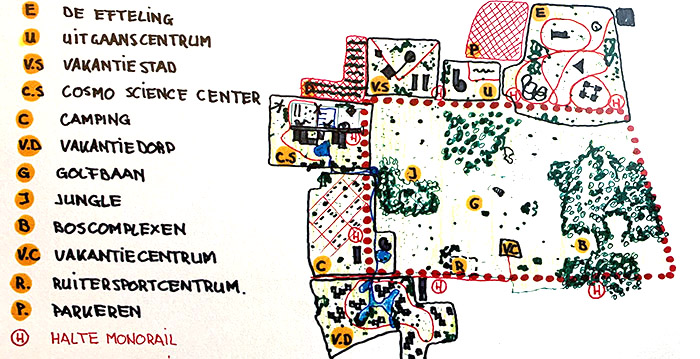 E DE EFTELING
U UITGAANSCENTRUM
V.S VAKANTIESTAD
C.S COSMO SCIENCE CENTER
C CAMPING
V.D VAKANTIEDORP
G GOLFBAAN
J JUNGLE
B BOSCOMPLEXEN
V.C VAKANTIECENTRUM
R. RUITERSPORTCENTRUM.
P. PARKEREN
H HALTE MONORAIL
E
P.
V.S
U
H
H
H
P.
H
C.S
J
G
H
B
V.C
R
C
H
H
V.D